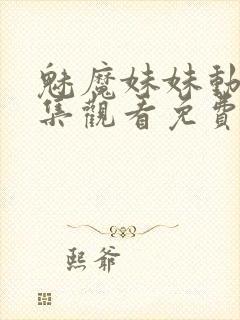 魅魔妹妹動
集觀看免費
熙爺